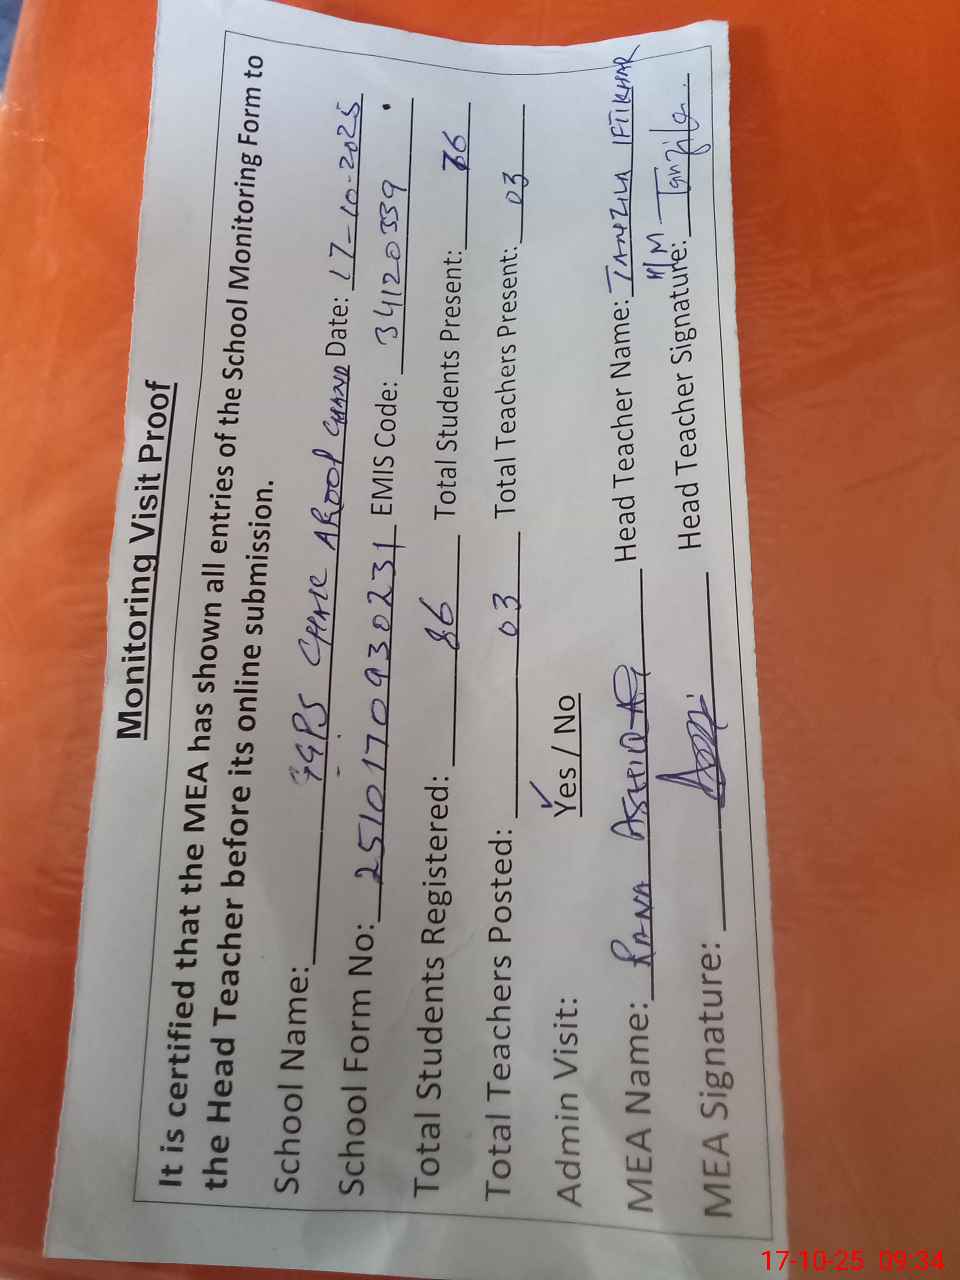 Monitoring Visit Proof
It is certified that the MEA has shown all entries of the School Monitoring Form to
the Head Teacher before its online submission.
School Name: GGPS CHAK AROOP CHAND Date: 17-10-2025
School Form No: 2510170930231 EMIS Code: 34120339
Total Students Registered: 86 Total Students Present: 76
Total Teachers Posted: 03 Total Teachers Present: 03
Admin Visit: Yes / No
MEA Name: RANA Head Teacher Name: TANZILA IFTIKHAR
H/M
MEA Signature: Head Teacher Signature: Tanzila
17-10-25 09:34